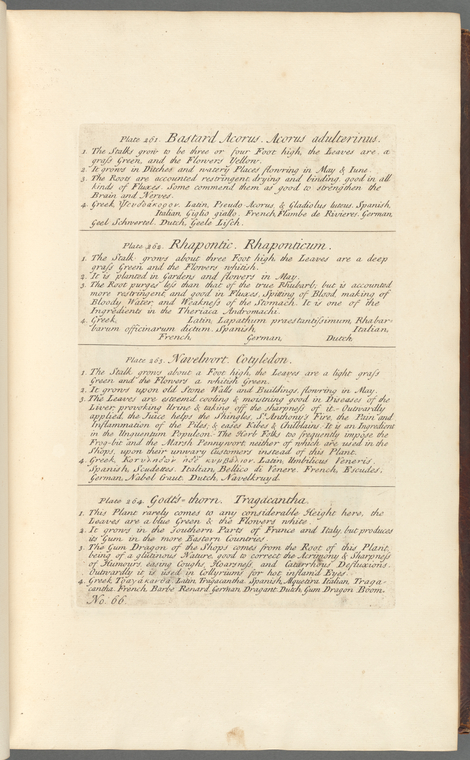 Plate 261. Bastard Acorus. Acorus adulterinus.
1. The Stalks grow to be three or four Foot high, the Leaves are a
grass Green, and the Flowers Yellow.
2. It grows in Ditches and watery Places flowring in May & June.
3. The Roots are accounted restringent, drying and binding, good in all
kinds of Fluxes. Some commend them as good to strengthen the
Brain and Nerves.
4. Greek, Latin, Pseudo Acorus, & Gladiolus luteus. Spanish,
Italian, Giglio giallo, French, Flambe de Rivieres. German,
Geel Schwertel. Dutch, Geele Lisch.
Plate 262. Rhapontic. Rhaponticum.
1. The Stalk grows about three Foot high, the Leaves are a deep
grass Green and the Flowers whitish.
2. It is planted in Gardens and flowers in May.
3. The Root purges less than that of the true Rhubarb; but is accounted
more restringent, and good in Fluxes, Spitting of Blood, making of
Bloody Water and Weakness of the Stomach. It is one of the
Ingredients in the Theriaca Andromachi.
4. Greek, Latin, Lapathum praestantissimum, Rhabar-
barum officinarum dictum. Spanish Italian,
French, German, Dutch
Plate 263. Navelwort. Cotyledon.
1. The Stalk grows about a Foot high, the Leaves are a light grass
Green and the Flowers a whitish Green.
2. It grows upon old Stone Walls and Buildings, flowring in May.
3. The Leaves are esteemd cooling & moistning good in Diseases of the
Liver, provoking Urine & taking off the sharpness of it. Outwardly
applied the Juice helps the Shingles, St. Anthony's Fire, the Pain and
Inflammation of the Piles; & eases Kibes & Chilblains. It is an Ingredient
in the Unguentum Populeon. The Herb Folks too frequently impose the
Frog-bit and the Marsh Pennywort, neither of which are used in the
Shops, upon their unwary Customers instead of this Plant.
4. Greek, Κοτυληδων Latin, Umbilicus Veneris.
Spanish, Scudettes. Italian, Bellico di Venere. French, Escudes.
German, Nabel Craut. Dutch, Navelkruyd.
Plate 264. Goats-thorn. Tragacantha.
1. This Plant rarely comes to any considerable Height here, the
Leaves are a blue Green & the Flowers white.
2. It grows in the Southern Parts of France and Italy, but produces
its Gum in the more Eastern Countries
3. The Gum Dragon of the Shops comes from the Root of this Plant,
being of a glutinous Nature, good to correct the Acrimony & Sharpness
of Humours, easing Coughs, Hoarsness, and Catarrhous Defluxions.
Outwardly it is used in Collyriums for hot inflamd Eyes.
4. Greek, Τραγακανθα. Latin, Tragacantha. Spanish, Alquetira. Italian, Traga-
cantha. French, Barbe Renard. German, Dragant. Dutch, Gum Dragon Boom.
No. 66.